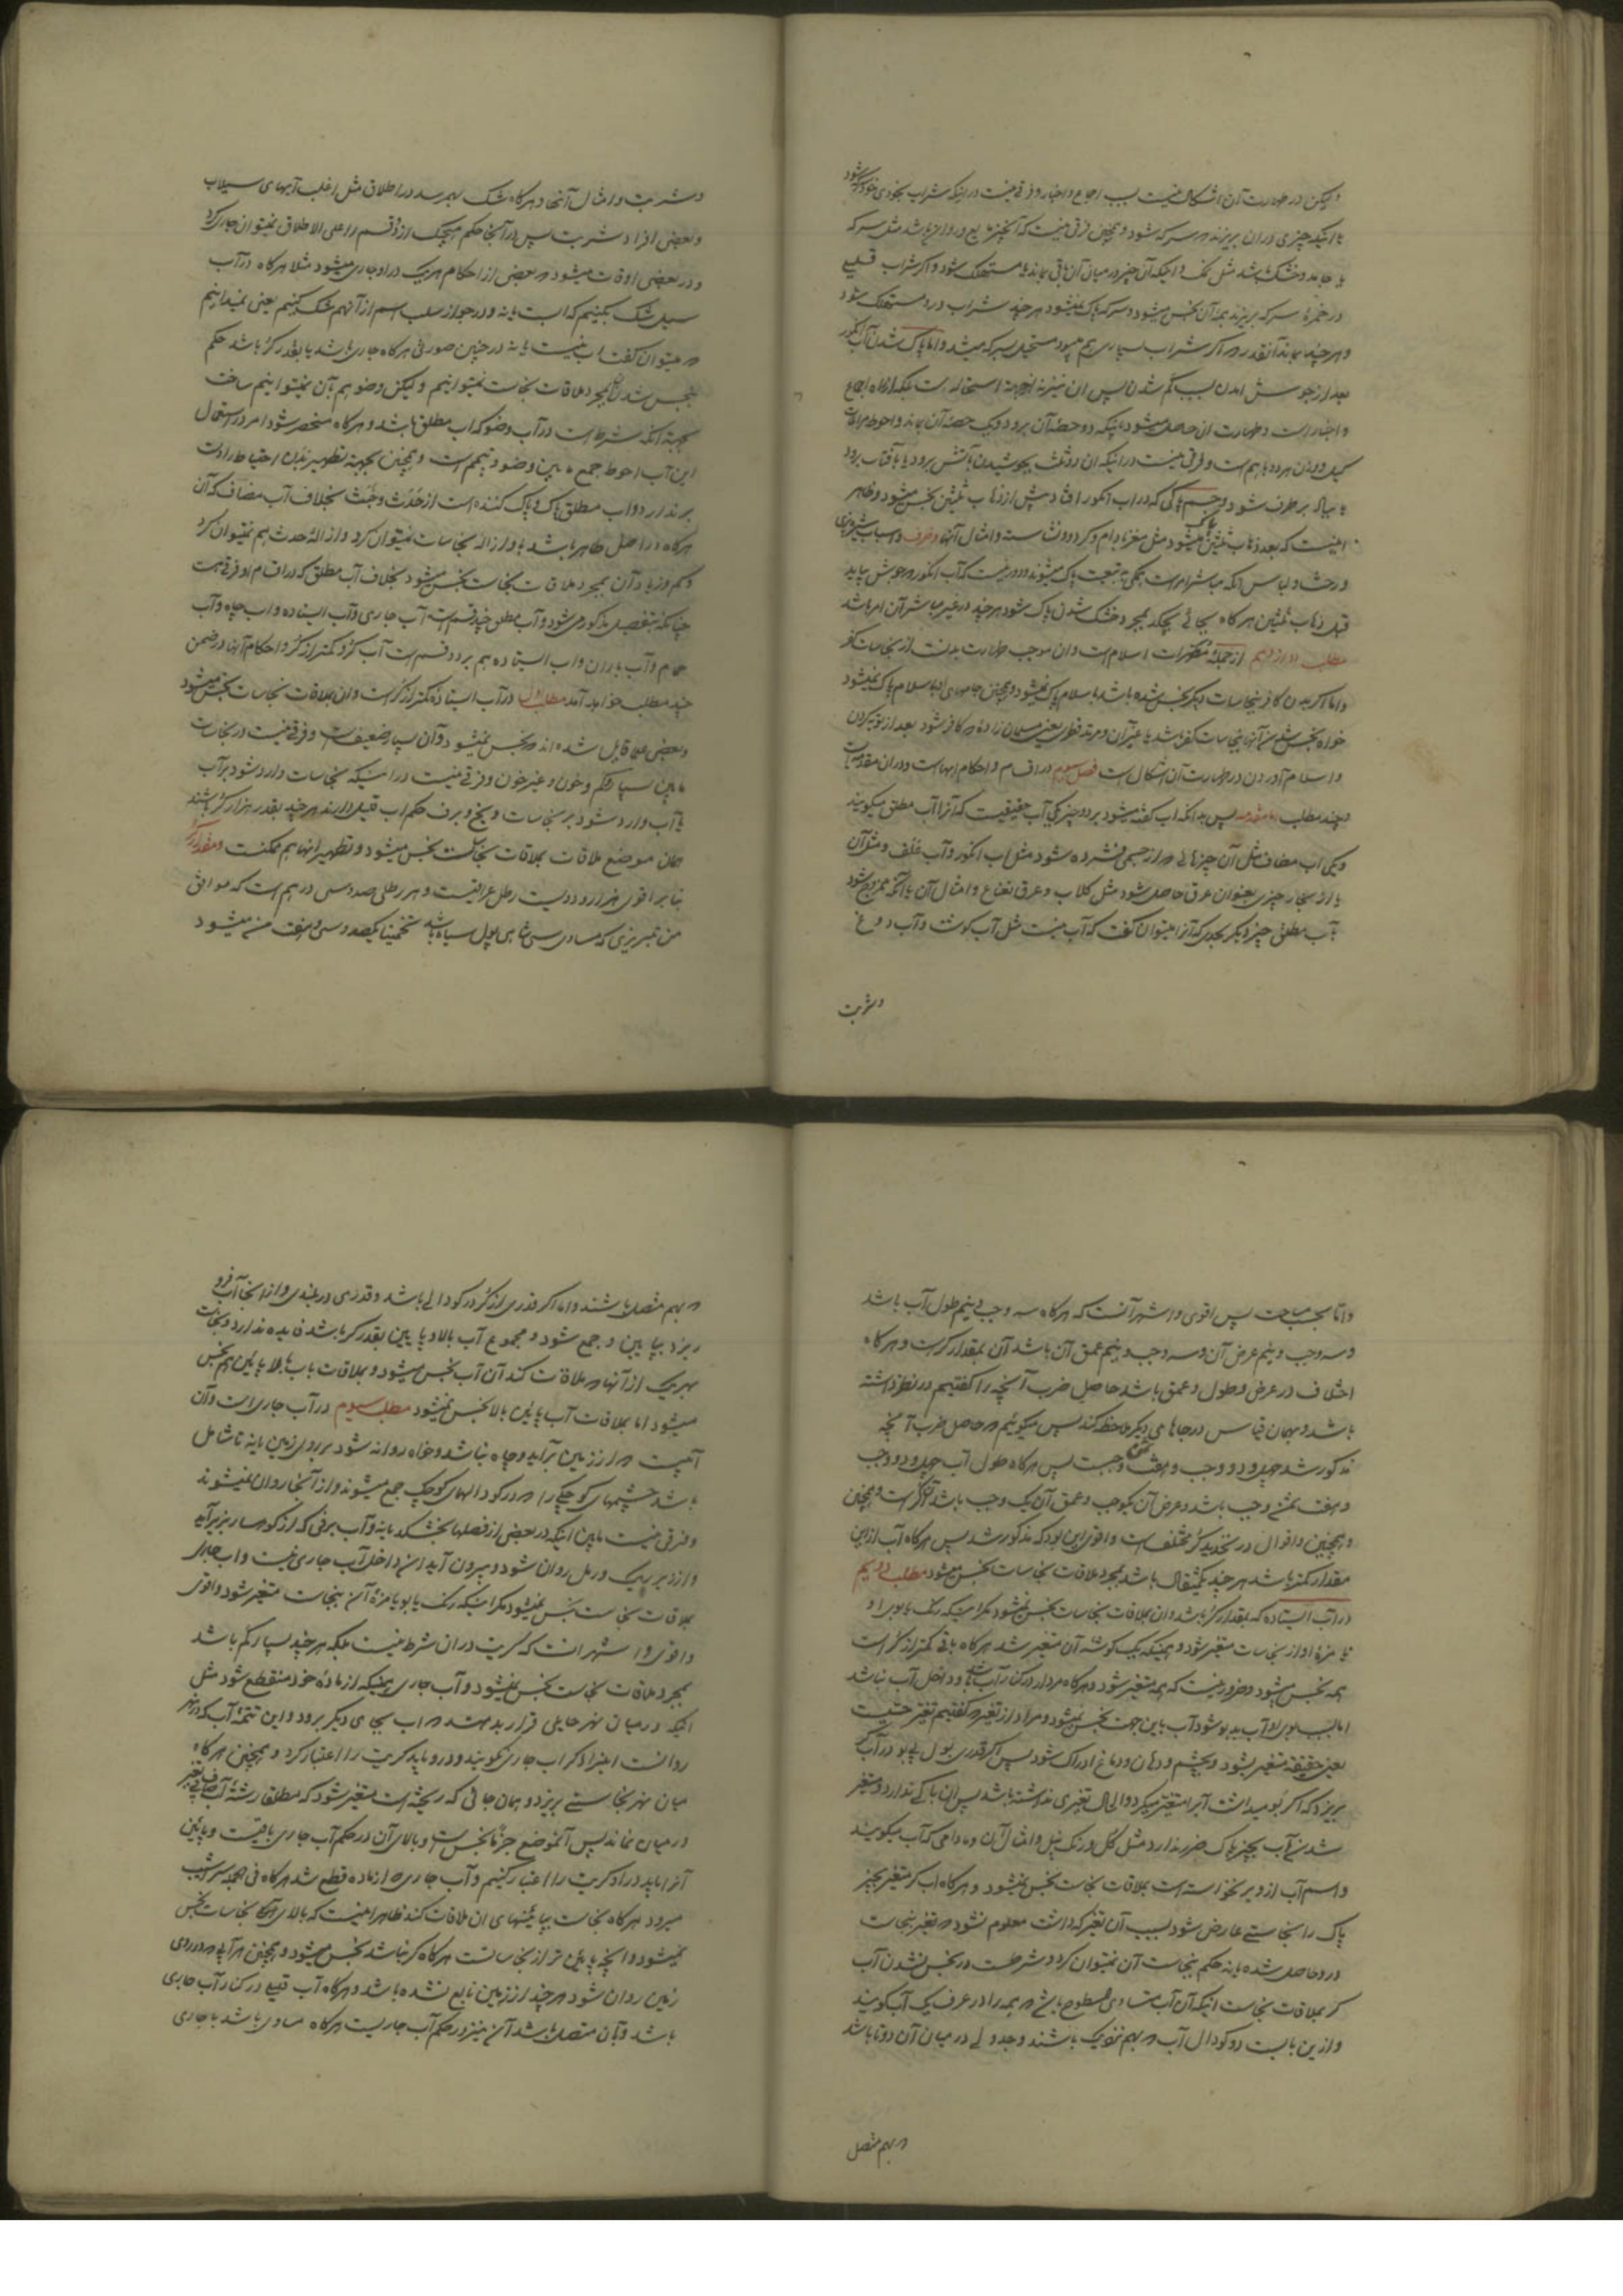 ولیکن در طهارت آن اشکال نیست بسبب اجماع و اخبار و فرقی نیست در اینکه شراب بخودی خود سرکه شود
یا اینکه چیزی در آن بریزند که سرکه شود و همچنین فرقی نیست که آنچیز مایع و روان باشد مثل سرکه
یا جامد و خشک باشد مثل نمک و اینکه آن چیز در میان آن باقی بماند یا مستهلک شود و اگر شراب قلیلی
در خمره سرکه بریزند همه آن نجس میشود و سرکه پاک نمیشود هر چند شراب در او مستهلک شود
و هر چند بماند آنقدر که اگر شراب بسیاری هم میبود مستحیل بسرکه میشد و اما پاک شدن آب انگور
بعد از جوش امدن بسبب کم شدن پس آن نیز نه از جهة استحاله است بلکه از راه اجماع
و اخبار است و طهارت آن حاصل میشود باینکه دو حصه آن برود و یک حصه آن بماند و احوط مراعات
کیل و وزن هر دو با هم است و فرقی نیست در اینکه آن دو ثلث بجوشیدن بآتش برود یا بآفتاب برود
یا بباد برطرف شود و جسم پاکی که در آب انگور افتاد پیش از ذهاب ثلثین نجس میشود و ظاهر
اینست که بعد ذهاب ثلثین پاک میشود مثل مغز بادام و گردو و نشاسته و امثال آنها و ظرف و اسباب شیره پزی
و رخت و لباس آنکه مباشر امر است همگی به تبعیت پاک میشوند و دور نیست که آب انگور که جوش بیاید
قبل ذهاب ثلثین هر گاه بجائی بچکد بمجرد خشک شدن پاک شود هر چند در غیر مباشر آن امر باشد
مطلب دوازدهم از جملهٔ مطهرات اسلام است و آن موجب طهارت بدنست از نجاسات کفر
و اما اگر بدن کافر بنجاسات دیگر نجس شده باشد باسلام پاک نمیشود و همچنین جامهای او باسلام پاک نمیشود
خواه نجس شدن آنها بنجاسات کفر باشد یا غیر آن و مرتد فطری یعنی مسلمان زاده که کافر شود بعد از توبه کردن
و اسلام آوردن در طهارت آن اشکال است فصل سوم در اقسام و احکام ابهاست و در آن مقدمه است
و چند مطلب اما مقدمه پس بدانکه آب گفته میشود بر دو چیز یکی آب حقیقیست که آنرا آب مطلق میگویند
و یکی آب مضاف مثل آن چیزهائی که از جسمی فشرده شود مثل آب انگور و آب علف و مثل آن
یا از بخار چیزی بعنوان عرق حاصل شود مثل گلاب و عرق نعناع و امثال آن یا آنکه ممزوج شود
بآب مطلق چیز دیگر بحدی که آنرا میتوان گفت که آب نیست مثل آب گوشت و آب دوغ
و شربت
و شربت و امثال آنها و هر گاه شک بهم رسد در اطلاق مثل اغلب آبهای سیلاب
و بعضی افراد شربت پس در آنجا حکم هیچیک از دو قسم را علی الاطلاق نمیتوان جاری کرد
و در بعضی اوقات میشود که بعضی از احکام هر یک در او جاری میشود مثلا هر گاه در آب
سیل شک بکنیم که آب است یا نه و در جواز سلب اسم از آنهم شک بکنیم یعنی نمیدانیم
که میتوان گفت آب نیست یا نه در چنین صورتی هر گاه جاری باشد یا بقدر کر باشد حکم
بنجس شدن آن بمجرد ملاقات نجاست نمیتوانیم و لیکن وضو هم بآن نمیتوانیم ساخت
بجهة آنکه شرط است در آب وضو که آب مطلق باشد و هر گاه منحصر شود امر در استعمال
این آب احوط جمع مابین وضو و تیمم است و همچنین بجهة تطهیر بدن احتیاط را دست
بر ندارد و آب مطلق پاک و پاک کننده است از حدث و خبث بخلاف آب مضاف که آن
هر گاه در اصل طاهر باشد باو ازاله نجاسات نمیتوان کرد و ازالهٔ حدث هم نمیتوان کرد
و کم و زیاد آن بمجرد ملاقات نجاست نجس میشود بخلاف آب مطلق که در اقسام او فرقی هست
چنانکه بتفصیل مذکور می‌شود و آب مطلق چند قسم است آب جاری و آب ایستاده و آب چاه و آب
حمام و آب باران و آب ایستاده هم بر دو قسم است آب کر و کمتر از کر و احکام آنها در ضمن
چند مطلب خواهد آمد مطلب اول در آب ایستاده کمتر از کر است و آن بملاقات نجاسات نجس میشود
و بعضی علما قایل شده‌اند که نجس نمیشود و آن بسیار ضعیف است و فرقی نیست در نجاست
مابین بسیار و کم و خون و غیر خون و فرقی نیست در اینکه نجاسات وارد شود بر آب
یا آب وارد شود بر نجاسات و یخ و برف حکم آب قلیل دارند هر چند بقدر هزار کر باشند
همان موضع ملاقات بملاقات نجاست نجس میشود و تطهیر آنها هم ممکنست و مقدار کر
بنابر اقوی هزار و دویست رطل عراقیست و هر رطلی صد و سی درهم است که موافق
من تبریزی که مساوی سی شاهی پول سیاه باشد تخمینا یکصد و سی و هفت من میشود
و اما بحسب مساحت پس اقوی و اشهر آنست که هر گاه سه وجب و نیم طول آب باشد
و سه وجب و نیم عرض آن و سه وجب و نیم عمق آن باشد آن بمقدار کر است و هر گاه
اختلاف در عرض و طول و عمق باشد حاصل ضرب آنچه را گفتیم در نظر داشته
باشد و بهمان قیاس در جاهای دیگر ملاحظه کند پس میگوئیم که حاصل ضرب آنچه
مذکور شد چهل و دو وجب و هفت ثمن وجبست پس هر گاه طول آب چهل و دو وجب
و هفت ثمن وجب باشد و عرض آن یکوجب و عمق آن یک وجب باشد آن کر است و همچنین
و همچنین و اقوال در تحدید کر مختلف است و اقوی این بود که مذکور شد پس هر گاه آب از این
مقدار کمتر باشد هر چند بیکمثقال باشد بمجرد ملاقات نجاسات نجس میشود مطلب دویم
در آب ایستاده که بمقدار کر باشد و آن بملاقات نجاسات نجس نمیشود مگر اینکه رنگ یا بوی او
یا مزهٔ او از نجاسات متغیر شود و همینکه یک گوشه آن متغیر شد هر گاه باقی کمتر از کر است
همه نجس میشود و ضرور نیست که همه متغیر شود و هر گاه مردار در کنار آب باشد و داخل آب نباشد
اما بسبب بوی او آب بدبو شود آب باین جهت نجس نمیشود و مراد از تغیر که گفتیم تغیر حسیست
یعنی حقیقة متغیر بشود و بچشم و دهان و دماغ ادراک شود پس اگر قدری بول بی بو در آب کر
بریزد که اگر بو میداشت آبرا متغیر میکرد و الحال تغیری نداشته باشد پس آن باکی ندارد و متغیر
شدن آب بچیز پاک ضرر ندارد مثل گل و رنگ نیل و امثال آن و مادامی که آب میگویند
و اسم آب از او بر نخواسته است بملاقات نجاست نجس نمیشود و هر گاه آب کر متغیر بچیز
پاک را نجاستی عارض شود بسبب آن تغیر که داشت معلوم نشود که تغیر نجاست
در او حاصل شده یا نه حکم بنجاست آن نمیتوان کرد و شرطست در نجس نشدن آب
کر بملاقات نجاست اینکه آن آب مساوی السطوح باشد که همه را در عرف یک آب گویند
و از این بابست دو گودال آب که بهم نزدیک باشند و جدولی در میان آن دو تا باشد
که بهم متصل
که بهم متصل باشند و اما اگر قدری از کر در گودالی باشد و قدری در بلندی و از آنجا آب فرو
ریزد بپایین و جمع شود و مجموع آب بالا و پایین بقدر کر باشد فایده ندارد و نجاست
بهر یک از آنها که ملاقات کند آن آب نجس میشود و بملاقات باب بالا پائین هم نجس
میشود اما بملاقات آب پائین بالا نجس نمیشود مطلب سیوم در آب جاری است و آن
آبیست که از زمین برآید و چاه نباشد و خواه روانه شود بر روی زمین یا نه تا شامل
باشد چشمهای کوچکی را که در گودالهای کوچک جمع میشوند و از آنجا روان نمیشوند
و فرقی نیست مابین اینکه در بعضی از فصلها بخشکد یا نه و آب برفی که از کوهسار بزیر آید
و از زیر ریگ و رمل روان شود و بیرون آید آن داخل آب جاری نیست و آب جاری
بملاقات نجاست نجس نمیشود مگر اینکه رنگ یا بو یا مزهٔ آن بنجاست متغیر شود و اقوی
و اقوی و اشهر آنست که کریت در آن شرط نیست بلکه هر چند بسیار کم باشد
بمجرد ملاقات نجاست نجس نمیشود و آب جاری همینکه از مادهٔ خود منقطع شود مثل
اینکه در میان نهر حایلی قرار بدهند که آب بجای دیگر برود و این تتمهٔ آب که در نهر
روانست اینرا دیگر آب جاری نگویند و در او باید کریت را اعتبار کرد و همچنین هر گاه
میان نهر نجاستی بریزد و همان جائی که ریخته است متغیر شود که مطلقا رشتهٔ آب صافی بی تغیر
در میان نماند پس آنموضع جزما نجس است و بالای آن در حکم آب جاری باقیست و پائین
آنرا باید در او کریت را اعتبار کنیم و آب جاری که از ماده قطع شد هر گاه فی الجمله سراشیب
میرود هر گاه نجاست بپائینهای آن ملاقات کند ظاهر اینست که بالای آنجا نجاسات نجس
نمیشود و آنچه پائین تر از نجاسات است هر گاه کر نباشد نجس میشود و همچنین هر آبی که در روی
زمین روان شود هر چند از زمین نابع نشده باشد و هر گاه آب قلیلی در کنار آب جاری
باشد و بآن متصل باشد آن نیز در حکم آب جاریست هر گاه مساوی باشد با جاری